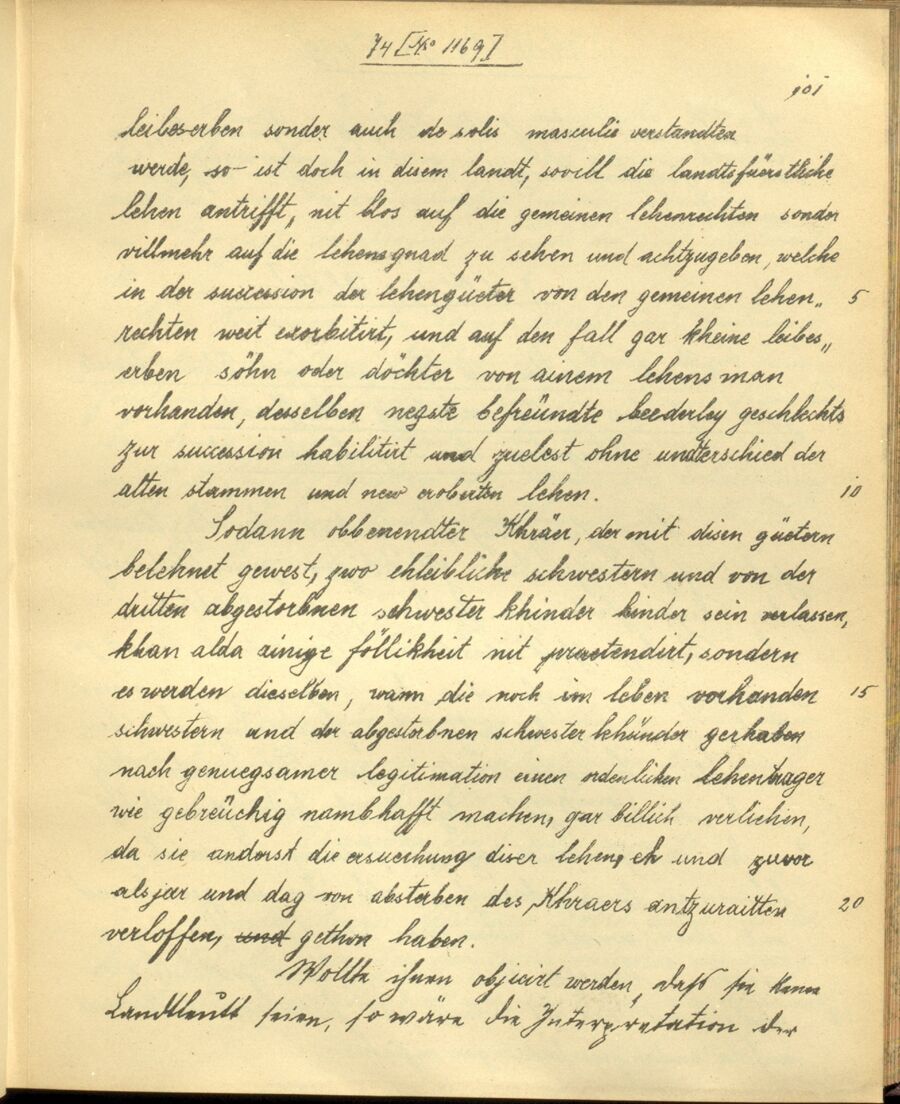 74 [No 1169]
101
leibeserben sonder auch de solis masculis verstandten
werde, so ist doch in disem landt, sovill die landtsfüerstliche
lehen antrifft, nit blos auf die gemeinen lehenrechten sonder
villmehr auf die lehensgnad zu sehen und achtzugeben, welche
in der succession der lehengüeter von den gemeinen lehen„ 5
rechten weit exorbitirt, und auf den fall gar kheine leibes„
erben söhn oder döchter von ainem lehensman
vorhanden, desselben negste befreündte beederley geschlechts
zur succession habilitirt und zuelest ohne undterschied der
alten stammen und new eroberten lehen. 10
Sodann obbenendter Khräer, der mit disen güetern
belehnet gewest, zwo ehleibliche schwestern und von der
dritten abgestorbnen schwester khinder hinder sein verlassen,
khan alda ainige föllikheit nit praetendirt, sondern
es werden dieselben, wann die noch im leben vorhanden 15
schwestern und der abgestorbnen schwester khünder gerhaben
nach genuegsamer legitimation einen ordenlichen lehentrager
wie gebreüchig nambhafft machen, gar billich verlichen,
da sie anderst die ersuechung diser lehen, eh und zuvor
als jar und dag von absterben des Khraers antzuraitten 20
verloffen, und gethon haben.
Wollte ihnen objicirt werden, daß sie kenne
Landtleütt seien, so wäre die Interpretation der